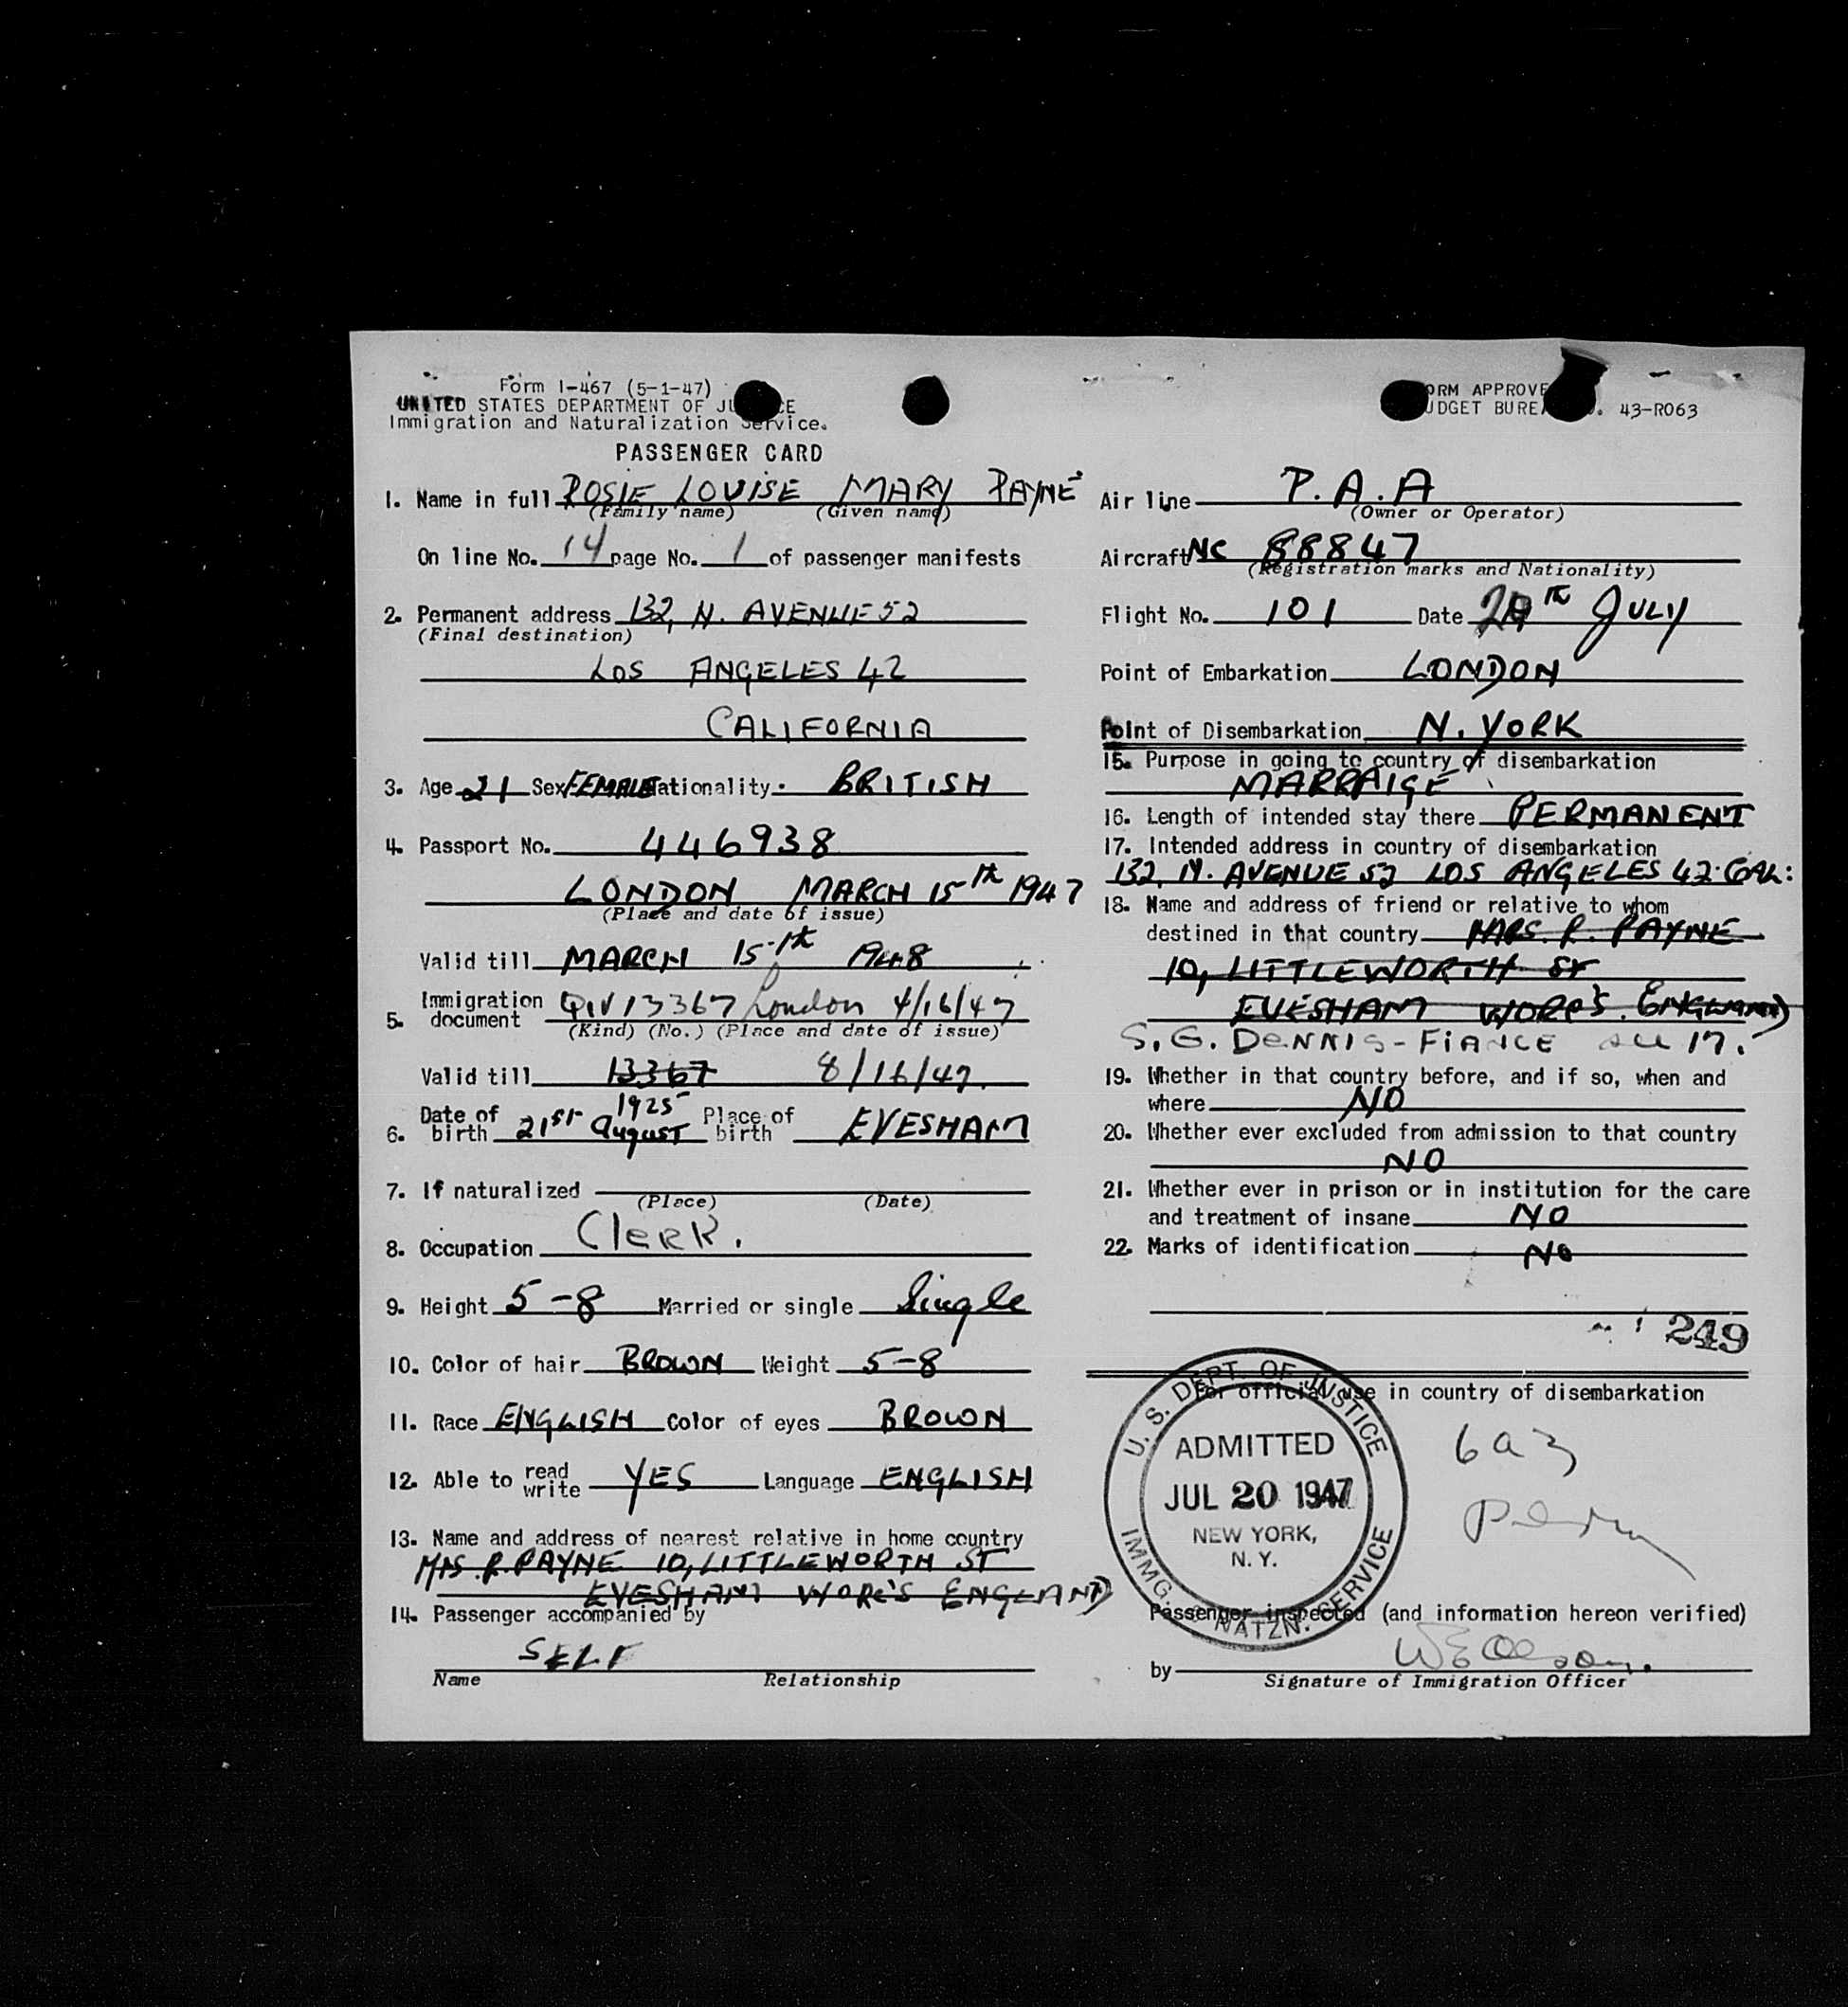 Form I-467 (5-1-47)
UNITED STATES DEPARTMENT OF JU CE
Immigration and Naturalization Service.
PASSENGER CARD
1. Name in full ROSIE LOUISE MARY PAYNE
(Family name) (Given name)
On line No. 14 page No. 1 of passenger manifests
2. Permanent address 132, N. AVENUE 52
(Final destination)
LOS ANGELES 42
CALIFORNIA
3. Age 21 Sex FEMALE Nationality. BRITISH
4. Passport No. 446938
LONDON MARCH 15th 1947
(Place and date of issue)
Valid till MARCH 15th 1948
5. Immigration document QIV 13367 London 4/16/47
(Kind) (No.) (Place and date of issue)
Valid till 13367 8/16/47.
6. Date of birth 21st August 1925 Place of birth EVESHAM
7. If naturalized
(Place) (Date)
8. Occupation Clerk.
9. Height 5-8 Married or single Single
10. Color of hair BROWN Height 5-8
11. Race ENGLISH Color of eyes BROWN
12. Able to read write YES Language ENGLISH
13. Name and address of nearest relative in home country
MRS. R. PAYNE 10, LITTLEWORTH ST
EVESHAM WORC'S ENGLAND
14. Passenger accompanied by
SELF
Name Relationship
ORM APPROVE
UDGET BUREA . 43-R063
Air line P.A.A
(Owner or Operator)
Aircraft NC 88847
(Registration marks and Nationality)
Flight No. 101 Date TH JULY
Point of Embarkation LONDON
Point of Disembarkation N. YORK
15. Purpose in going to country of disembarkation
MARRAIGE
16. Length of intended stay there PERMANENT
17. Intended address in country of disembarkation
132, N. AVENUE 52 LOS ANGELES 42. CAL:
18. Name and address of friend or relative to whom
destined in that country MRS. R. PAYNE
10, LITTLEWORTH ST
EVESHAM WORC'S. ENGLAND
S. G. DENNIS - FIANCE 17.
19. Whether in that country before, and if so, when and
where NO
20. Whether ever excluded from admission to that country
NO
21. Whether ever in prison or in institution for the care
and treatment of insane NO
22. Marks of identification NO
249
For official use in country of disembarkation
U. S. DEPT. OF JUSTICE
ADMITTED
JUL 20 1947
NEW YORK,
N. Y.
IMMG. & NATZN. SERVICE
Passenger inspected (and information hereon verified)
by
Signature of Immigration Officer